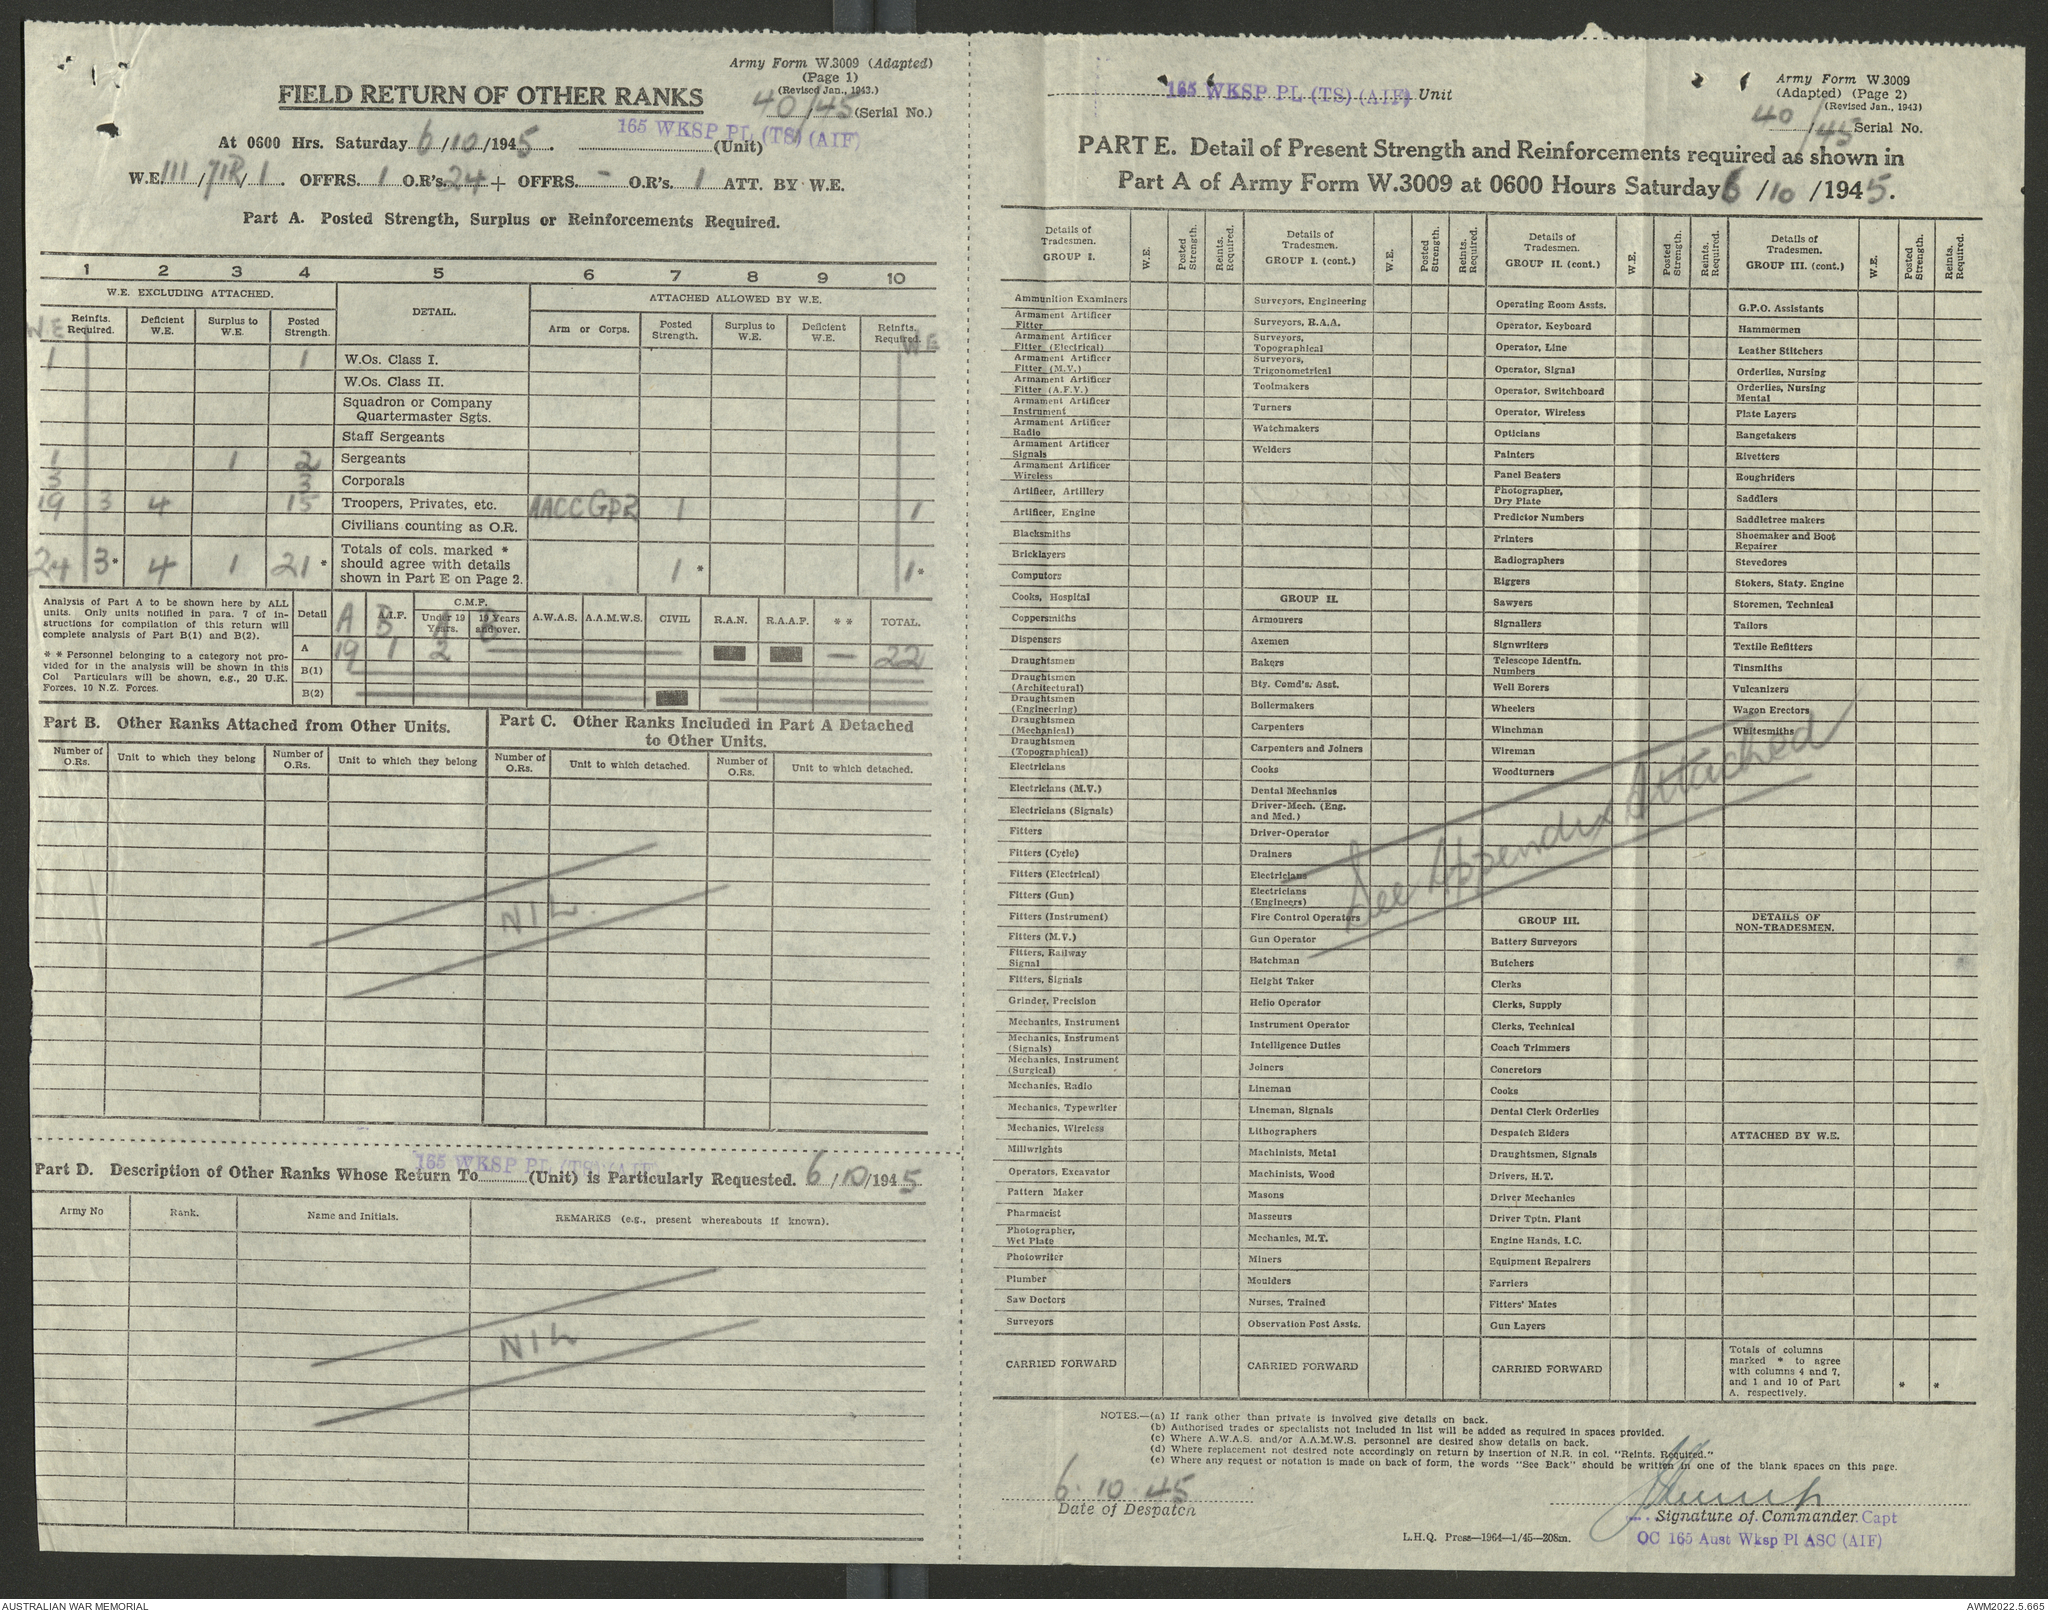 Army Form W.3009 (Adapted)
(Page 1)
(Revised Jan., 1943.)
FIELD RETURN OF OTHER RANKS
40/45 (Serial No.)
165 WKSP PL (TS) (AIF)
At 0600 Hrs. Saturday 6/10/1945. (Unit)
W.E. III/ /1. OFFRS. 1 O.R's. 24 + OFFRS. - O.R's. 1 ATT. BY W.E.
Part A. Posted Strength, Surplus or Reinforcements Required.
1 2 3 4 5 6 7 8 9 10
W.E. EXCLUDING ATTACHED. DETAIL. ATTACHED ALLOWED BY W.E.
W.E Reinfts. Required. Deficient W.E. Surplus to W.E. Posted Strength. Arm or Corps. Posted Strength. Surplus to W.E. Deficient W.E. Reinfts. Required. W E
1 1 W.Os. Class I.
W.Os. Class II.
Squadron or Company
Quartermaster Sgts.
Staff Sergeants
1 1 2 Sergeants
3 3 Corporals
19 3 4 15 Troopers, Privates, etc. AACC GP2 1 1
Civilians counting as O.R.
24 3* 4 1 21* Totals of cols. marked * should agree with details shown in Part E on Page 2. 1* 1*
Analysis of Part A to be shown here by ALL
units. Only units notified in para. 7 of in-
structions for compilation of this return will
complete analysis of Part B(1) and B(2).
* * Personnel belonging to a category not pro-
vided for in the analysis will be shown in this
Col Particulars will be shown, e.g., 20 U.K.
Forces, 10 N.Z. Forces.
Detail A.I.F. C.M.F. Under 19 Years. 19 Years and over. A.W.A.S. A.A.M.W.S. CIVIL R.A.N. R.A.A.F. * * TOTAL.
A B A B
A 19 1 2 — 22
B(1)
B(2)
Part B. Other Ranks Attached from Other Units.
Number of O.Rs. Unit to which they belong Number of O.Rs. Unit to which they belong
Part C. Other Ranks Included in Part A Detached
to Other Units.
Number of O.Rs. Unit to which detached. Number of O.Rs. Unit to which detached.
NIL.
165 WKSP PL (TS) (AIF)
Part D. Description of Other Ranks Whose Return To (Unit) is Particularly Requested. 6/10/1945
Army No Rank. Name and Initials. REMARKS (e.g., present whereabouts if known).
NIL
165 WKSP PL (TS) (AIF) Unit
Army Form W.3009
(Adapted) (Page 2)
(Revised Jan., 1943)
40/45 Serial No.
PART E. Detail of Present Strength and Reinforcements required as shown in
Part A of Army Form W.3009 at 0600 Hours Saturday 6/10/1945.
Details of Tradesmen. GROUP I. W.E. Posted Strength. Reints. Required.
Ammunition Examiners
Armament Artificer Fitter
Armament Artificer Fitter (Electrical)
Armament Artificer Fitter (M.V.)
Armament Artificer Fitter (A.F.V.)
Armament Artificer Instrument
Armament Artificer Radio
Armament Artificer Signals
Armament Artificer Wireless
Artificer, Artillery
Artificer, Engine
Blacksmiths
Bricklayers
Computors
Cooks, Hospital
Coppersmiths
Dispensers
Draughtsmen
Draughtsmen (Architectural)
Draughtsmen (Engineering)
Draughtsmen (Mechanical)
Draughtsmen (Topographical)
Electricians
Electricians (M.V.)
Electricians (Signals)
Fitters
Fitters (Cycle)
Fitters (Electrical)
Fitters (Gun)
Fitters (Instrument)
Fitters (M.V.)
Fitters, Railway Signal
Fitters, Signals
Grinder, Precision
Mechanics, Instrument
Mechanics, Instrument (Signals)
Mechanics, Instrument (Surgical)
Mechanics, Radio
Mechanics, Typewriter
Mechanics, Wireless
Millwrights
Operators, Excavator
Pattern Maker
Pharmacist
Photographer, Wet Plate
Photowriter
Plumber
Saw Doctors
Surveyors
CARRIED FORWARD
Details of Tradesmen. GROUP I. (cont.) W.E. Posted Strength. Reints. Required.
Surveyors, Engineering
Surveyors, R.A.A.
Surveyors, Topographical
Surveyors, Trigonometrical
Toolmakers
Turners
Watchmakers
Welders
GROUP II.
Armourers
Axemen
Bakers
Bty. Comd's. Asst.
Boilermakers
Carpenters
Carpenters and Joiners
Cooks
Dental Mechanics
Driver-Mech. (Eng. and Med.)
Driver-Operator
Drainers
Electricians
Electricians (Engineers)
Fire Control Operators
Gun Operator
Hatchman
Height Taker
Helio Operator
Instrument Operator
Intelligence Duties
Joiners
Lineman
Lineman, Signals
Lithographers
Machinists, Metal
Machinists, Wood
Masons
Masseurs
Mechanics, M.T.
Miners
Moulders
Nurses, Trained
Observation Post Assts.
CARRIED FORWARD
Details of Tradesmen. GROUP II. (cont.) W.E. Posted Strength. Reints. Required.
Operating Room Assts.
Operator, Keyboard
Operator, Line
Operator, Signal
Operator, Switchboard
Operator, Wireless
Opticians
Painters
Panel Beaters
Photographer, Dry Plate
Predictor Numbers
Printers
Radiographers
Riggers
Sawyers
Signallers
Signwriters
Telescope Identfn. Numbers
Well Borers
Wheelers
Winchman
Wireman
Woodturners
See Appendix Attached
GROUP III.
Battery Surveyors
Butchers
Clerks
Clerks, Supply
Clerks, Technical
Coach Trimmers
Concretors
Cooks
Dental Clerk Orderlies
Despatch Riders
Draughtsmen, Signals
Drivers, H.T.
Driver Mechanics
Driver Tptn. Plant
Engine Hands, I.C.
Equipment Repairers
Farriers
Fitters' Mates
Gun Layers
CARRIED FORWARD
Details of Tradesmen. GROUP III. (cont.) W.E. Posted Strength. Reints. Required.
G.P.O. Assistants
Hammermen
Leather Stitchers
Orderlies, Nursing
Orderlies, Nursing Mental
Plate Layers
Rangetakers
Rivetters
Roughriders
Saddlers
Saddletree makers
Shoemaker and Boot Repairer
Stevedores
Stokers, Staty. Engine
Storemen, Technical
Tailors
Textile Refitters
Tinsmiths
Vulcanizers
Wagon Erectors
Whitesmiths
DETAILS OF
NON-TRADESMEN.
ATTACHED BY W.E.
Totals of columns
marked * to agree
with columns 4 and 7,
and 1 and 10 of Part
A, respectively. * *
NOTES.—(a) If rank other than private is involved give details on back.
(b) Authorised trades or specialists not included in list will be added as required in spaces provided.
(c) Where A.W.A.S. and/or A.A.M.W.S. personnel are desired show details on back.
(d) Where replacement not desired note accordingly on return by insertion of N.R. in col. "Reints. Required."
(e) Where any request or notation is made on back of form, the words "See Back" should be written in one of the blank spaces on this page.
6.10.45
Date of Despatch
Signature of Commander Capt
L.H.Q. Press—1964—1/45—208m.
OC 165 Aust Wksp Pl ASC (AIF)
AUSTRALIAN WAR MEMORIAL
AWM2022.5.665